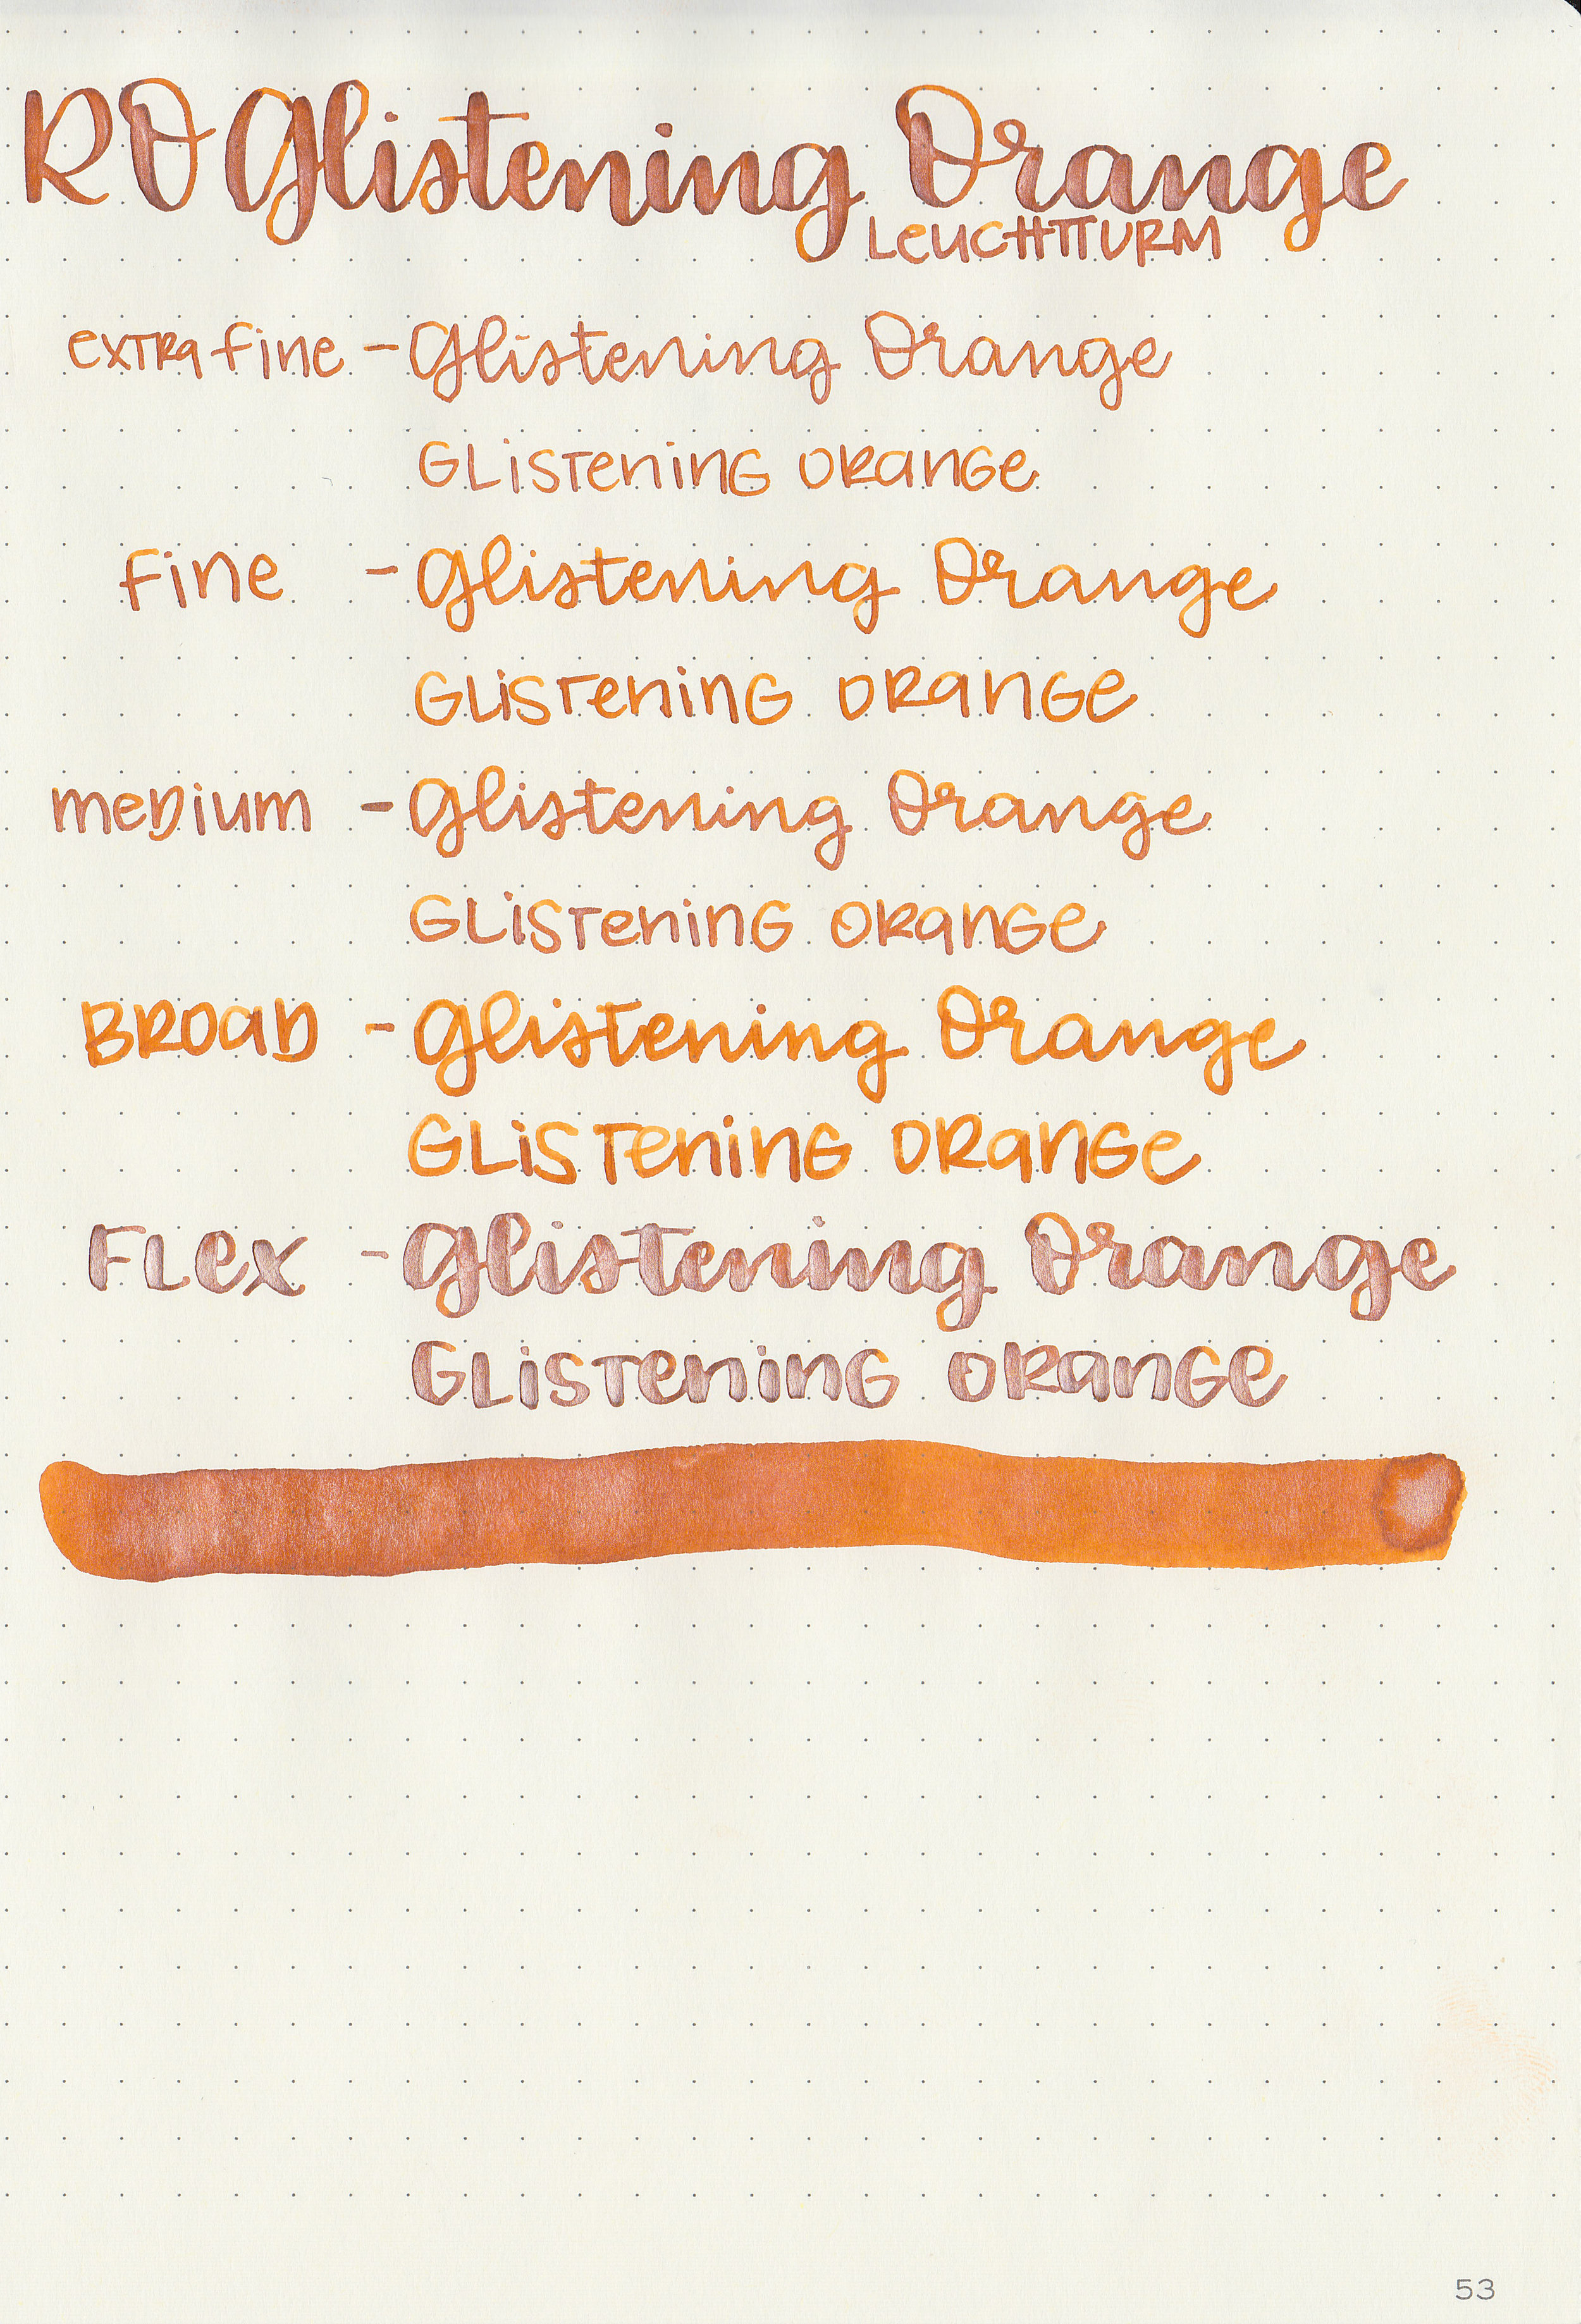 RO Glistening Orange
Leuchtturm
extra fine - Glistening Orange
Glistening Orange
Fine - Glistening Orange
Glistening Orange
Medium - Glistening Orange
Glistening Orange
Broad - Glistening Orange
Glistening Orange
Flex - Glistening Orange
Glistening Orange
53